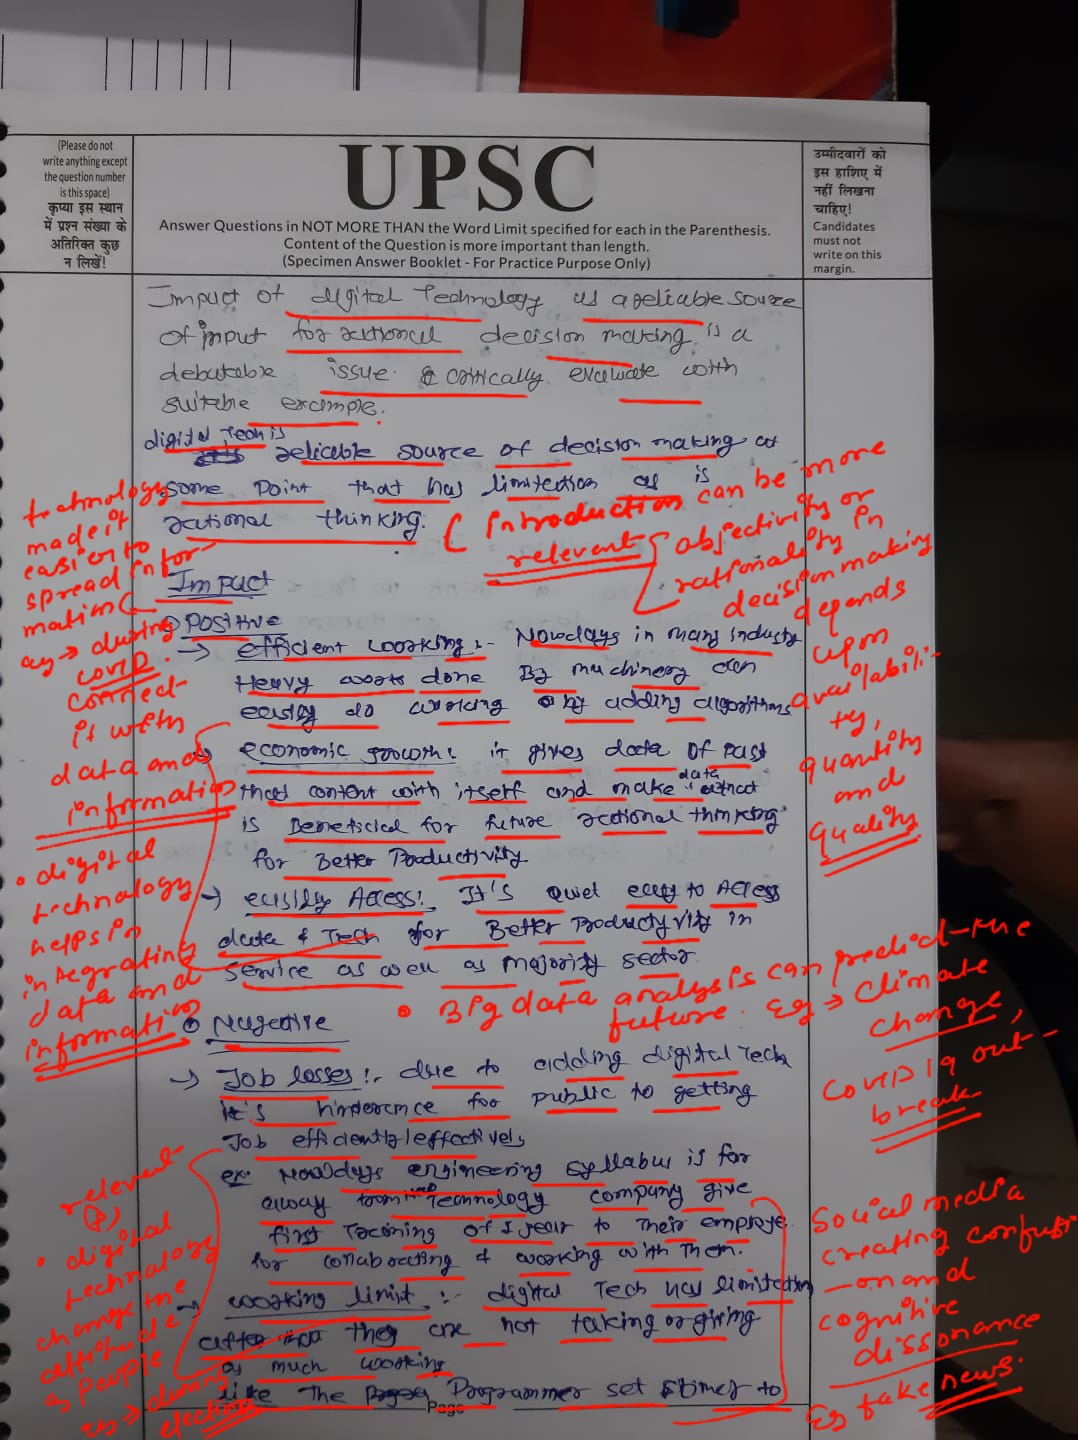 (Please do not
write anything except
the question number
is this space)
कृप्या इस स्थान
में प्रश्न संख्या के
अतिरिक्त कुछ
न लिखें!
UPSC
Answer Questions in NOT MORE THAN the Word Limit specified for each in the Parenthesis.
Content of the Question is more important than length.
(Specimen Answer Booklet - For Practice Purpose Only)
उम्मीदवारों को
इस हाशिए में
नहीं लिखना
चाहिए!
Candidates
must not
write on this
margin.
Impact of digital Technology as a reliable source
of input for rational decision making is a
debatable issue. critically evaluate with
suitable example.
digital Tech is
reliable source of decision making at
some point that has limitection as is
rational thinking.
Introduction can be more
relevent
objectivity or
rationality in
decision making
depends
upon
availabili-
ty,
quantity
and
quality
technology
made it
easier to
spread infor-
mation
eg → during
covid.
connect
it with
data and
information
• digital
technology
helps in
integrating
data and
information
Impact
Positive
→ efficient working :- Nowdays in many industry
Heavy work done By machinery can
easily do working by adding algorithms
→ economic growth: it gives data of past
that content with itself and make data extract
is Beneficial for future rational thinking
for Better Productivity.
→ easily Access: It's quiet easy to Access
data & Tech for Better Productyvity in
service as well as majority sector.
• Big data analysis can predict the
future. Eg → Climate
change,
COVID 19 out-
break
• Nagetive
→ Job losses :- due to adding digital Tech
it's hinderence for public to getting
Job efficiently/effectively
ex: Nowdays engineering syllabus is for
away from Technology company give
first Tracning of 1 year to their employe
for collaborating & working with them.
→ working limit :- digital Tech has limitection
after that they are not taking or giving
as much working
like The Programmer set timer to
relevent
(?)
• digital
technology
change the
attitude
of people
eg → during
election
Social media
creating confusi
-on and
cognitive
dissonance
Eg fake news.
Page